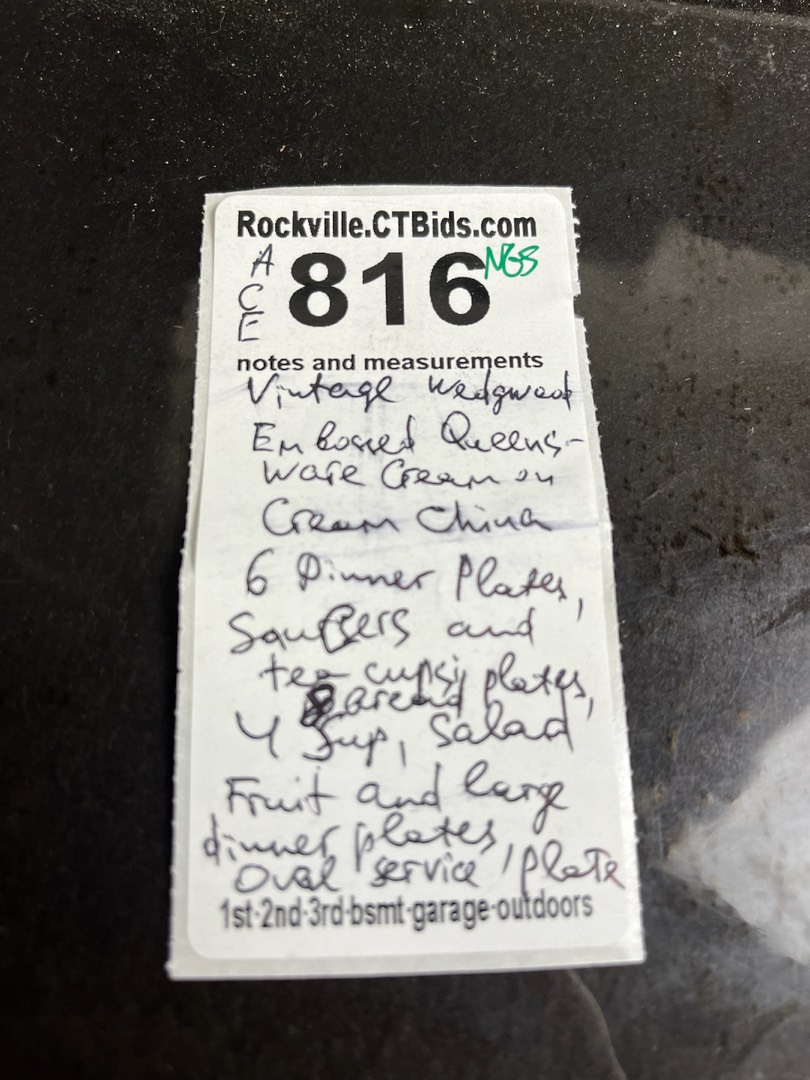 Rockville.CTBids.com
A
C
E
816
NGS
notes and measurements
Vintage Wedgwood
Embossed Queens-
ware Cream on
Cream China
6 Dinner Plates,
and
tea cups, plates,
bread
4 Sup, Salad
Fruit and large
dinner plates,
Oval service plate
1st-2nd-3rd-bsmt-garage-outdoors